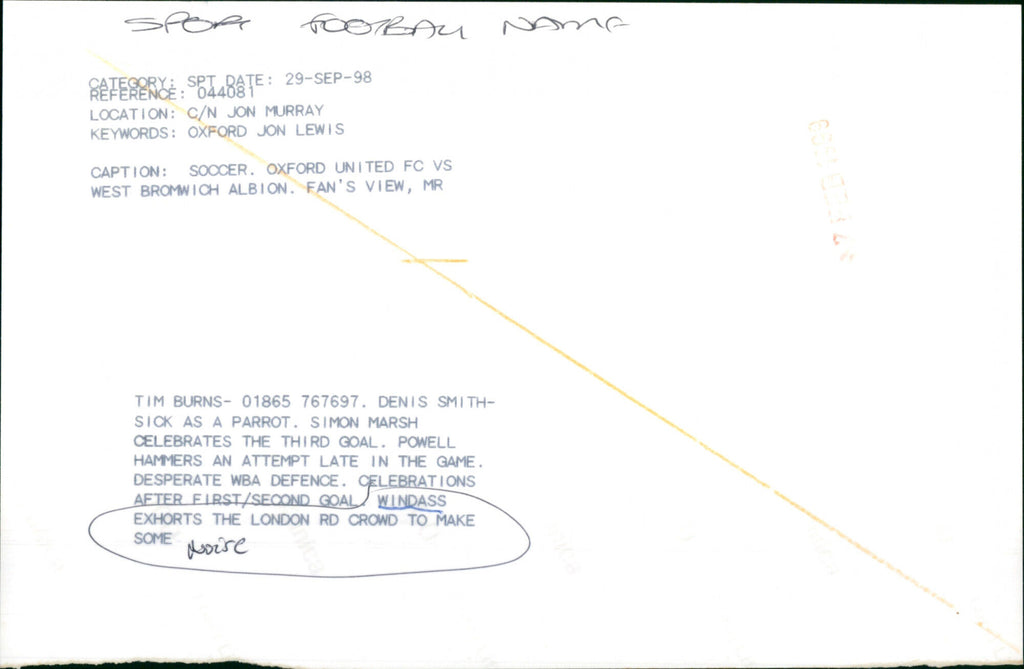 SPORT FOOTBALL NAME
CATEGORY: SPT DATE: 29-SEP-98
REFERENCE: 044081
LOCATION: C/N JON MURRAY
KEYWORDS: OXFORD JON LEWIS
CAPTION: SOCCER. OXFORD UNITED FC VS
WEST BROMWICH ALBION. FAN'S VIEW, MR
TIM BURNS- 01865 767697. DENIS SMITH-
SICK AS A PARROT. SIMON MARSH
CELEBRATES THE THIRD GOAL. POWELL
HAMMERS AN ATTEMPT LATE IN THE GAME.
DESPERATE WBA DEFENCE. CELEBRATIONS
AFTER FIRST/SECOND GOAL. WINDASS
EXHORTS THE LONDON RD CROWD TO MAKE
SOME Noise